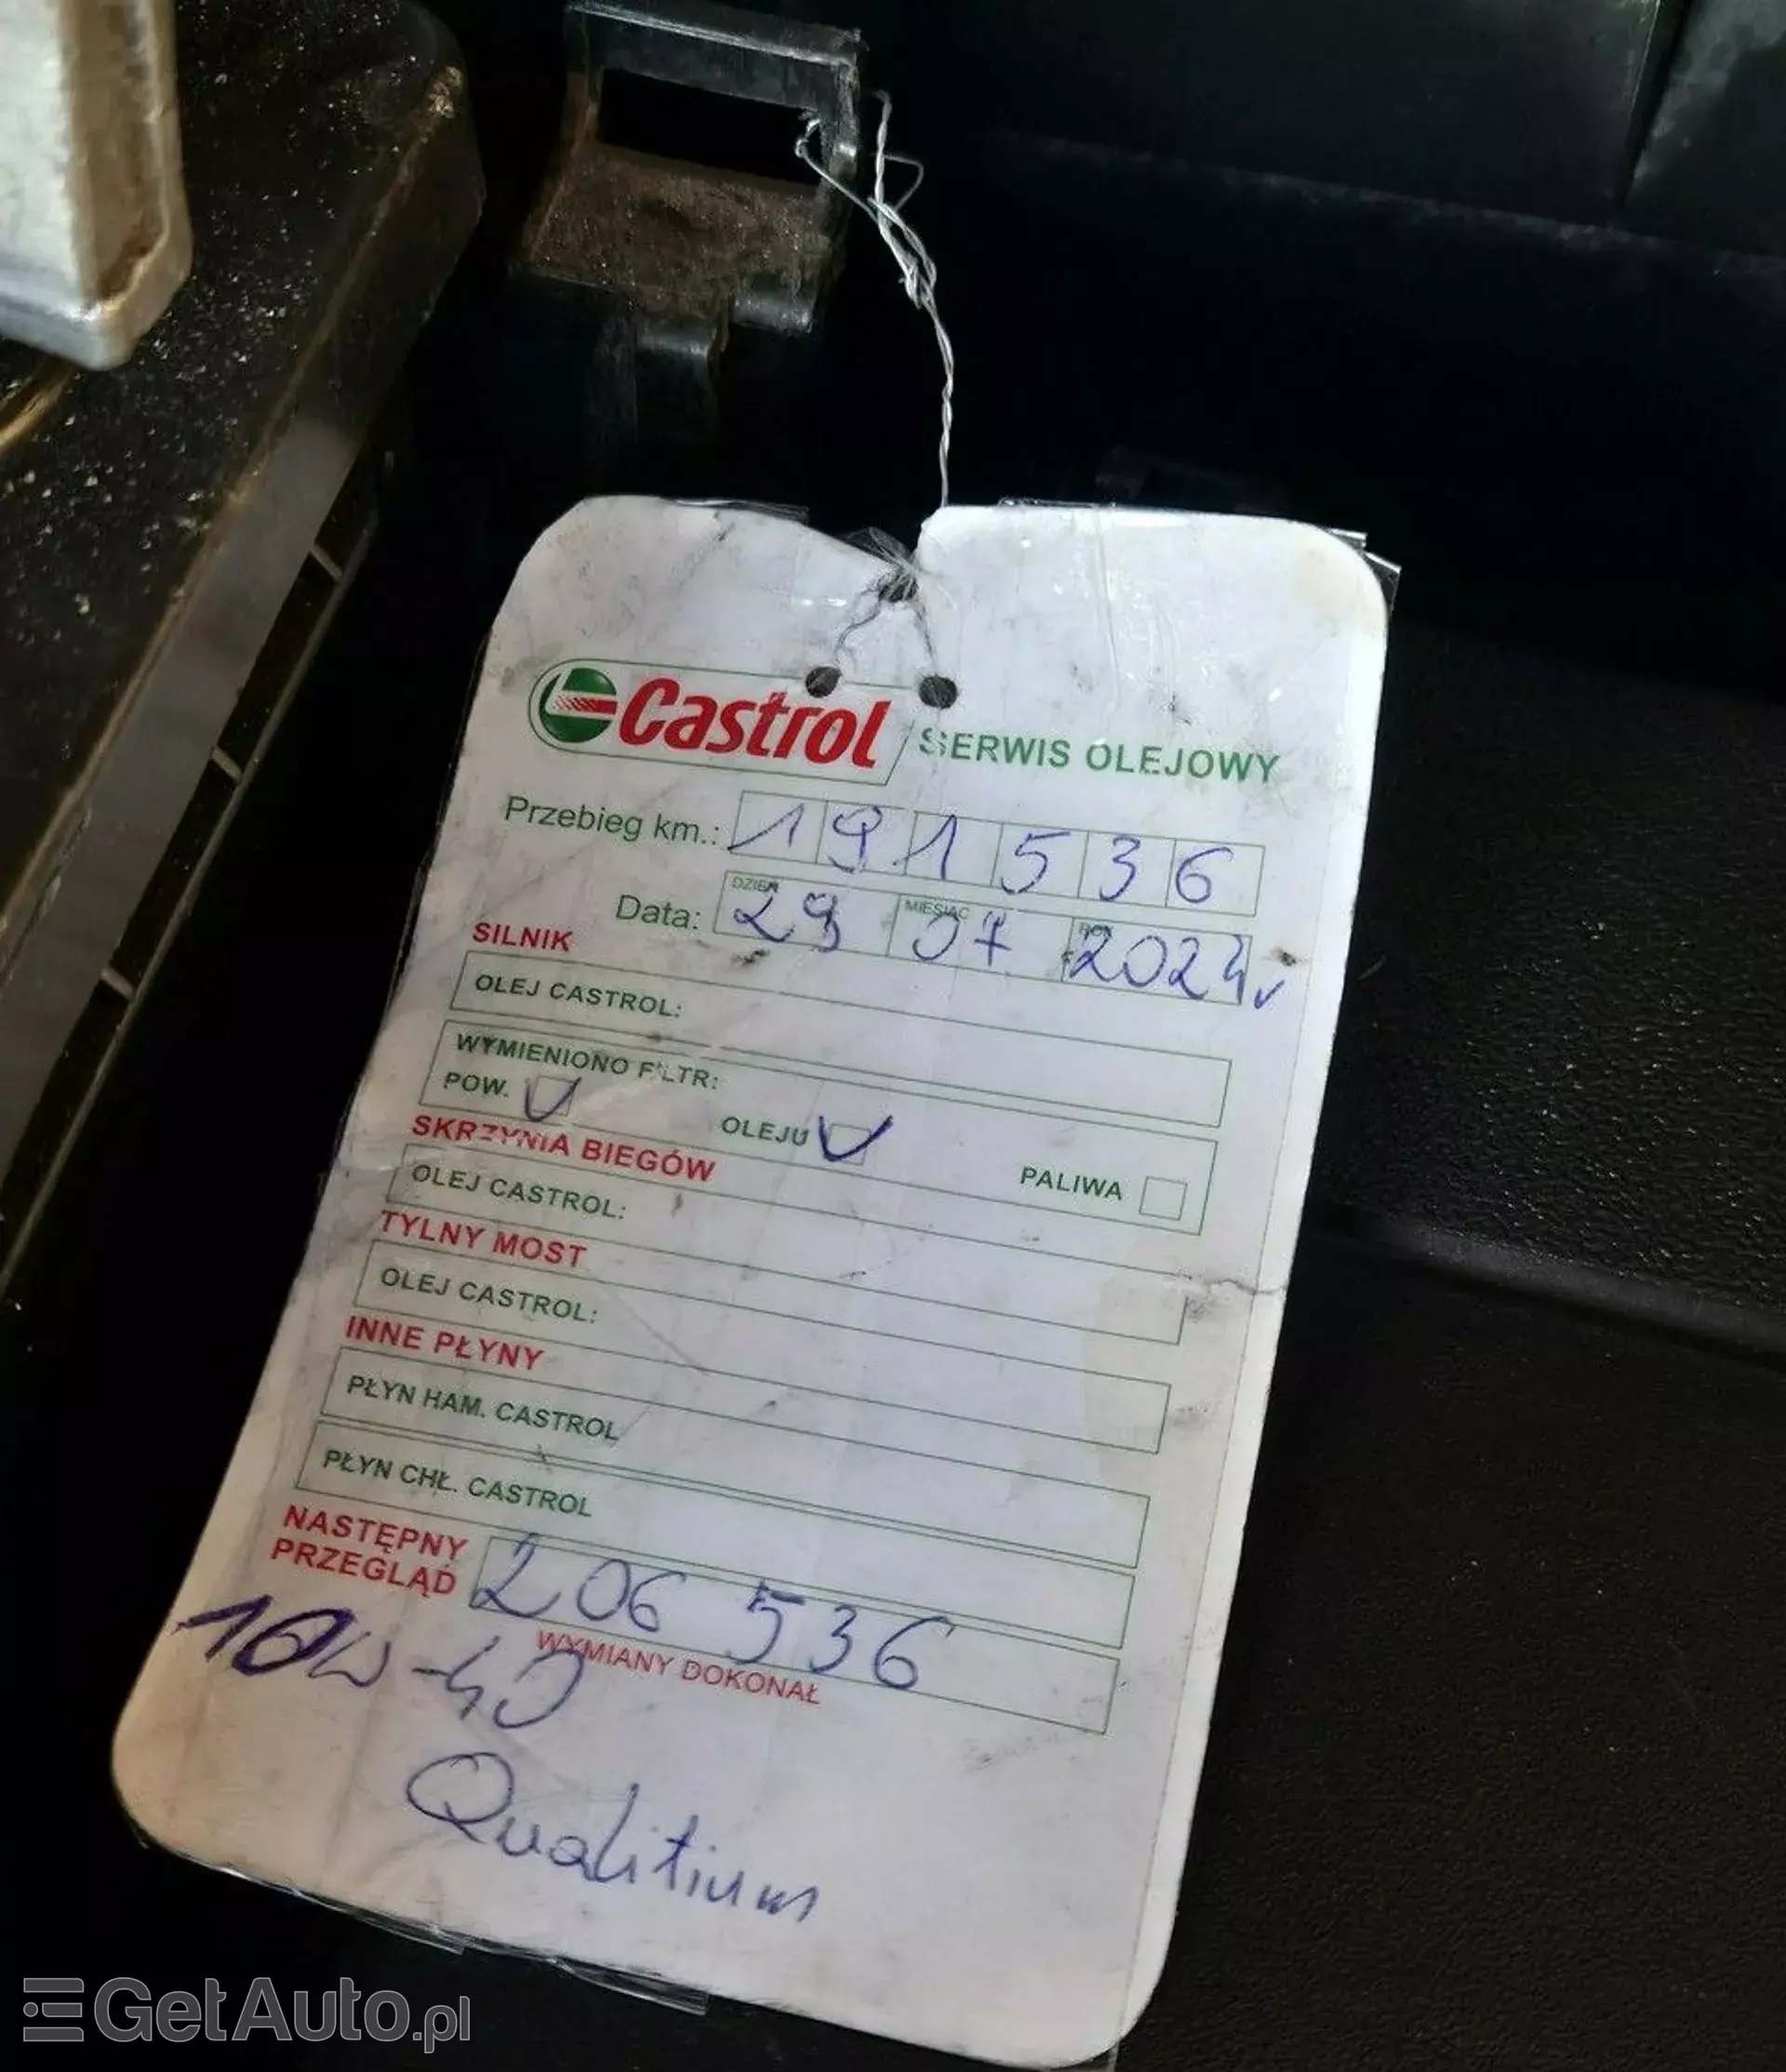 Castrol SERWIS OLEJOWY
Przebieg km.: 191536
DZIEŃ MIESIĄC ROK
Data: 29 07 2024r
SILNIK
OLEJ CASTROL:
WYMIENIONO FILTR:
POW. OLEJU PALIWA
SKRZYNIA BIEGÓW
OLEJ CASTROL:
TYLNY MOST
OLEJ CASTROL:
INNE PŁYNY
PŁYN HAM. CASTROL
PŁYN CHŁ. CASTROL
NASTĘPNY
PRZEGLĄD 206 536
WYMIANY DOKONAŁ
10W-40
Qualitium
GetAuto.pl